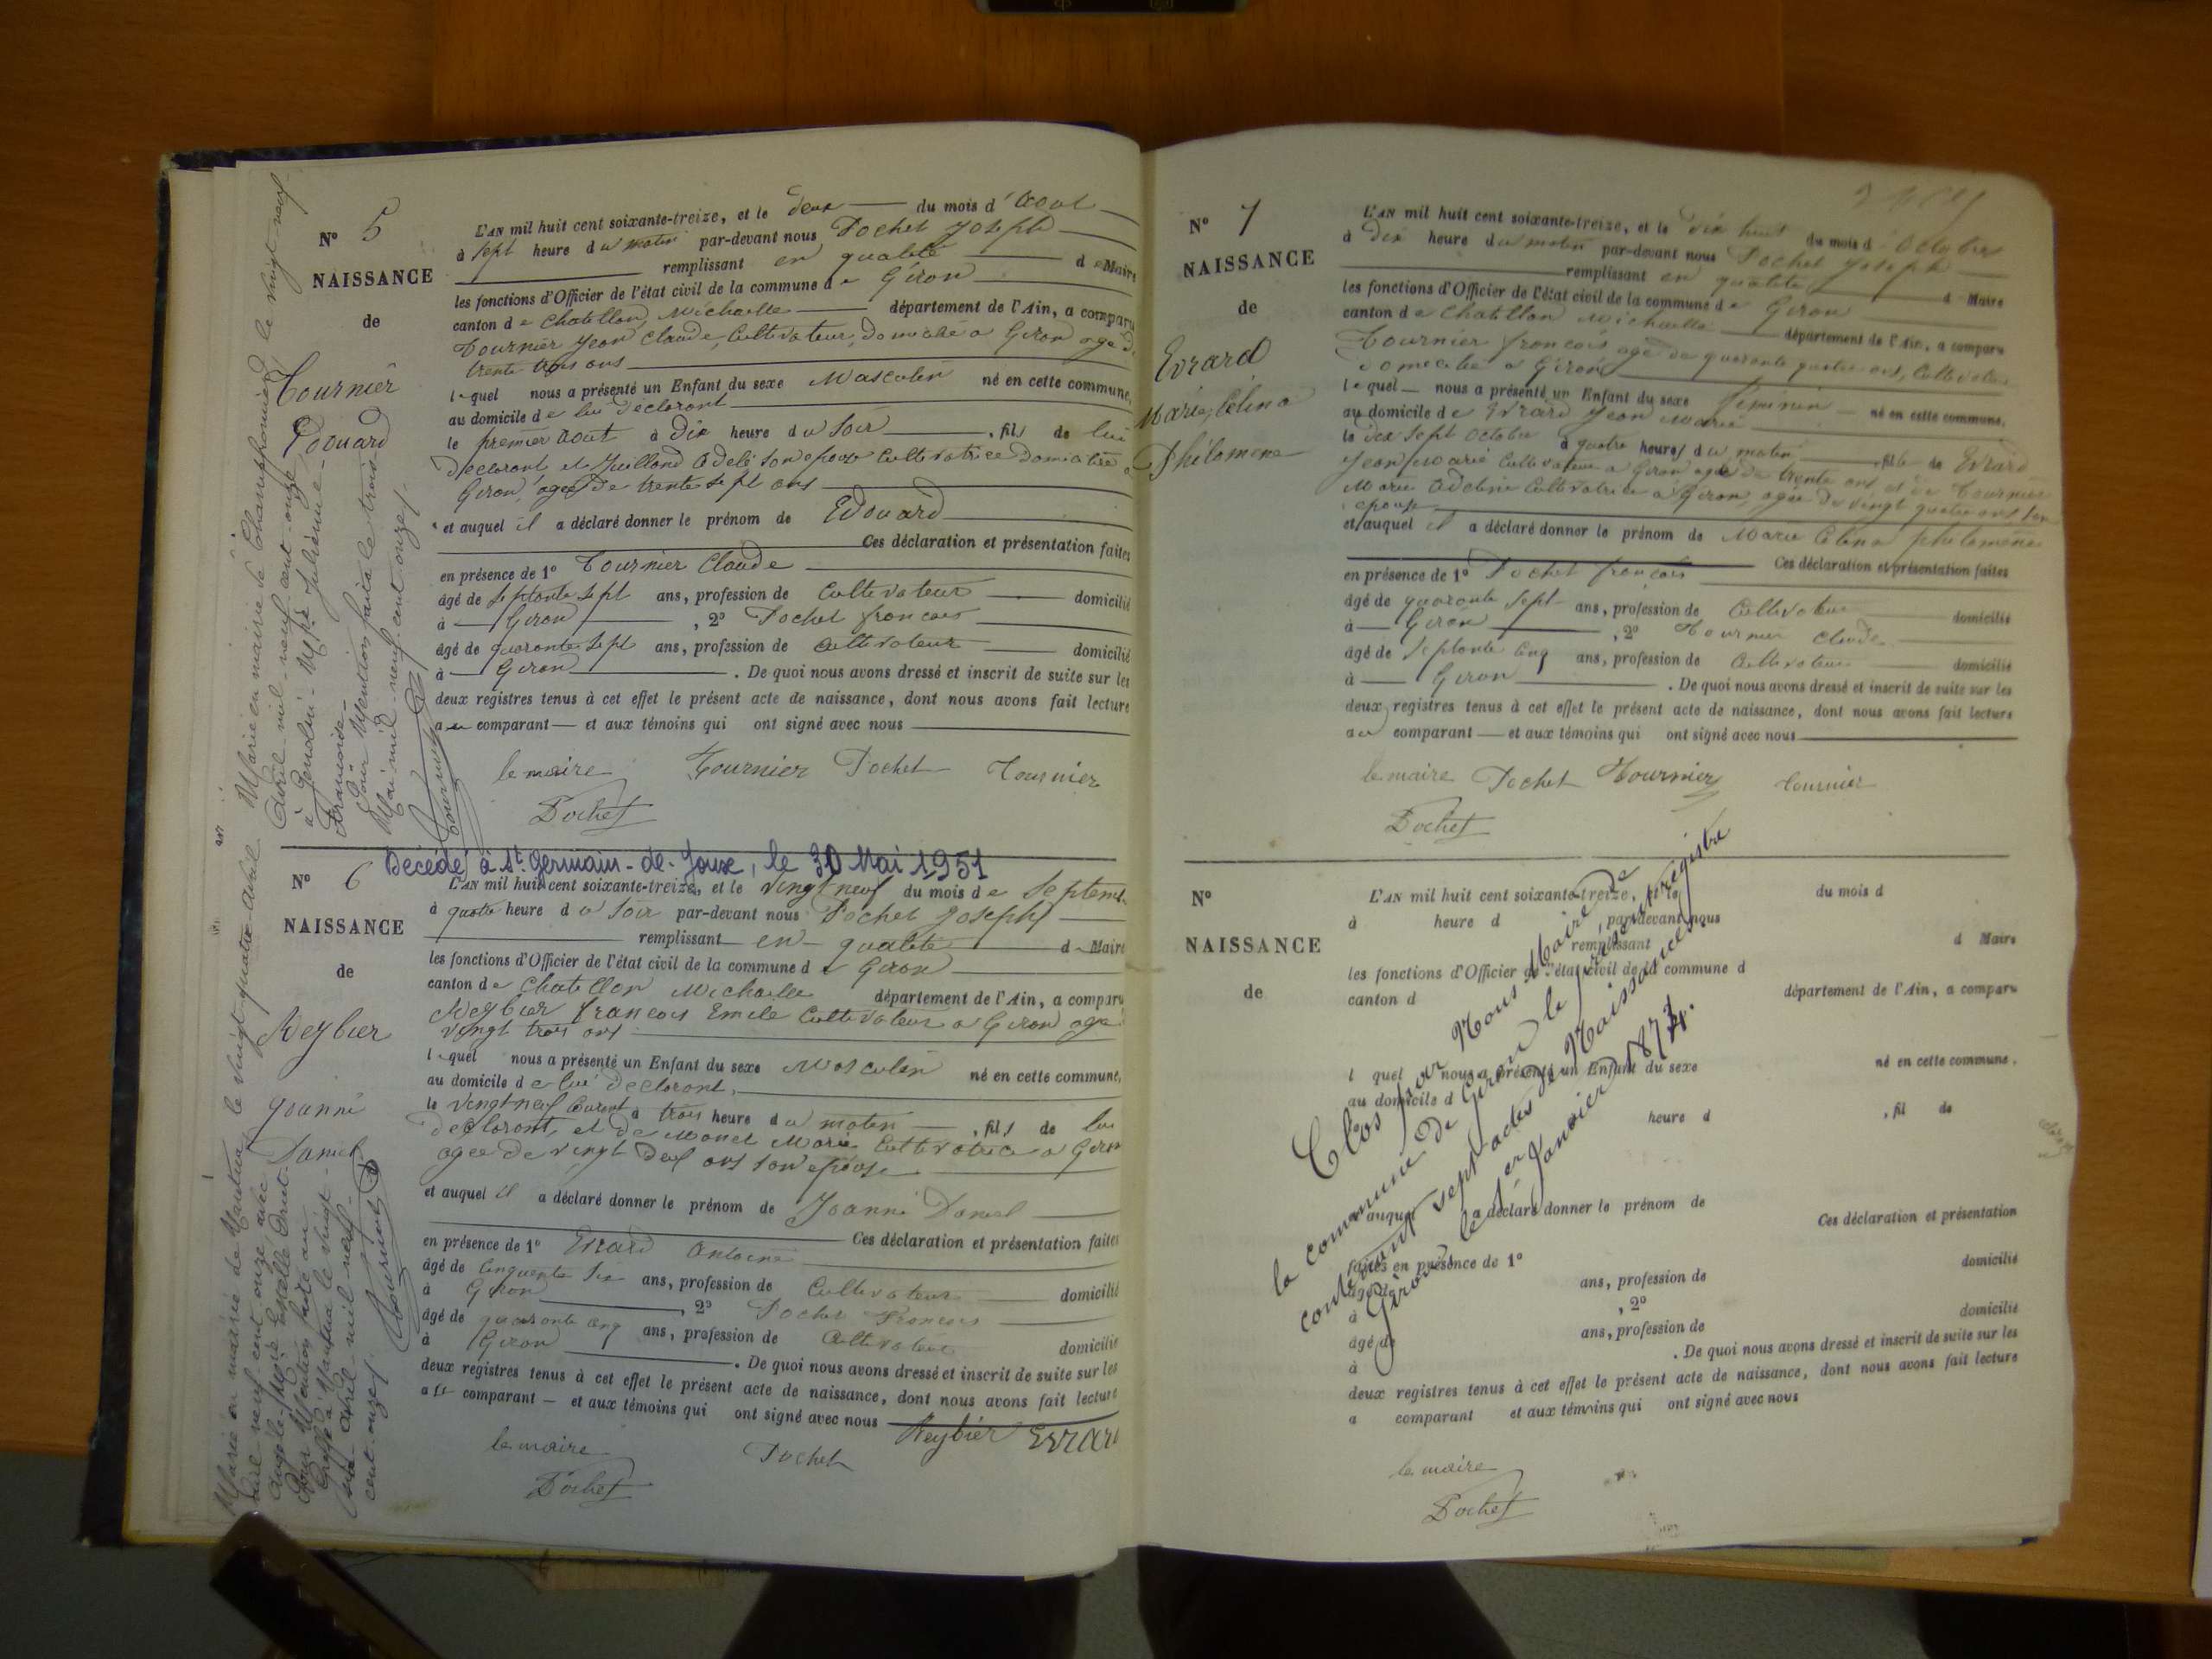 N° 5
NAISSANCE
de
Tournier
Edouard
L'AN mil huit cent soixante-treize, et le deux du mois d'Aout
à sept heure du matin par-devant nous Pochet Joseph
remplissant en qualité de Maire
les fonctions d'Officier de l'état civil de la commune de Giron
canton de Chatillon Michaille département de l'Ain, a comparu
Tournier Jean Claude, Cultivateur, domicilié a Giron agé de
trente trois ans
lequel nous a présenté un Enfant du sexe Masculin né en cette commune,
au domicile de lui declarant
le premier Aout à Dix heure du soir, fils de lui
declarant et Juilland Adele son epouse Cultivatrice domiciliée a
Giron, agée de trente sept ans
et auquel il a déclaré donner le prénom de Edouard
Ces déclaration et présentation faites
en présence de 1° Tournier Claude
âgé de septante sept ans, profession de Cultivateur domicilié
à Giron, 2° Pochet francois
âgé de quarante sept ans, profession de Cultivateur domicilié
à Giron. De quoi nous avons dressé et inscrit de suite sur les
deux registres tenus à cet effet le présent acte de naissance, dont nous avons fait lecture
au comparant et aux témoins qui ont signé avec nous
le maire Tournier Pochet Tournier
Pochet
Marié en mairie de Champfromier, le vingt neuf
Avril mil neuf cent onze
à Gendrui Mie Julienne
Françoise
Pour Mention faite le trois
Mai mil neuf cent onze
Tournier
Décédé à St. Germain-de-Joux, le 30 Mai 1951
N° 6
NAISSANCE
de
Reybier
Joanni
Daniel
L'AN mil huit cent soixante-treize, et le Vingt neuf du mois de Septemb
à quatre heure du soir par-devant nous Pochet Joseph
remplissant en qualité de Maire
les fonctions d'Officier de l'état civil de la commune de Giron
canton de Chatillon Michaille département de l'Ain, a comparu
Reybier francois Emile Cultivateur a Giron agé
vingt trois ans
lequel nous a présenté un Enfant du sexe Masculin né en cette commune,
au domicile de lui declarant,
le vingt neuf Courant à trois heure du matin, fils de lui
declarant, et de Monet Marie Cultivatrice a Giron
agee de vingt deux ans son epouse
et auquel il a déclaré donner le prénom de Joanni Daniel
Ces déclaration et présentation faites
en présence de 1° Evrard Antoine
âgé de Cinquante Six ans, profession de Cultivateur domicilié
à Giron, 2° Pochet Francois
âgé de quarante cinq ans, profession de Cultivateur domicilié
à Giron. De quoi nous avons dressé et inscrit de suite sur les
deux registres tenus à cet effet le présent acte de naissance, dont nous avons fait lecture
au comparant et aux témoins qui ont signé avec nous Reybier Evrard
le maire Pochet
Pochet
Marié en mairie de Nantua le vingt-quatre avril
mil neuf cent onze, avec
Angèle Marie Estelle
Pour Mention faite au
Greffe à Nantua le vingt
six avril mil neuf
cent onze
Tournier
N° 7
NAISSANCE
de
Evrard
Marie, Célina
Philomene
L'AN mil huit cent soixante-treize, et le dix huit du mois d'Octobre
à dix heure du matin par-devant nous Pochet Joseph
remplissant en qualité d Maire
les fonctions d'Officier de l'état civil de la commune de Giron
canton de Chatillon Michaille département de l'Ain, a comparu
Tournier francois agé de quarante quatre ans, Cultivateur
domicilié a Giron
lequel nous a présenté un Enfant du sexe féminin né en cette commune,
au domicile de Evrard Jean Marie
le dix sept Octobre à quatre heures du matin, fille de Evrard
Jean Marie Cultivateur a Giron agé de trente ans et de Tournier
Marie Adeline Cultivatrice a Giron, agée de vingt quatre ans son
epouse
et auquel il a déclaré donner le prénom de Marie Celina philomene
Ces déclaration et présentation faites
en présence de 1° Pochet francois
âgé de quarante sept ans, profession de Cultivateur domicilié
à Giron, 2° Tournier Claude
âgé de septante cinq ans, profession de Cultivateur domicilié
à Giron. De quoi nous avons dressé et inscrit de suite sur les
deux registres tenus à cet effet le présent acte de naissance, dont nous avons fait lecture
au comparant et aux témoins qui ont signé avec nous
le maire Pochet Tournier Tournier
Pochet
N°
NAISSANCE
de
L'AN mil huit cent soixante-treize, et le du mois d
à heure d, par-devant nous
remplissant d Maire
les fonctions d'Officier de l'état civil de la commune d
canton d département de l'Ain, a comparu
l quel nous a présenté un Enfant du sexe né en cette commune.
au domicile d
heure d, fil de
auquel a déclaré donner le prénom de
Ces déclaration et présentation
faites en présence de 1°
âgé de ans, profession de domicilié
à, 2°
âgé de ans, profession de domicilié
à. De quoi nous avons dressé et inscrit de suite sur les
deux registres tenus à cet effet le présent acte de naissance, dont nous avons fait lecture
a comparant et aux témoins qui ont signé avec nous
Clos par Nous Maire de
la commune de Giron le présent régistre
contenant sept actes de Naissances.
Giron le 1er Janvier 1874.
le maire
Pochet